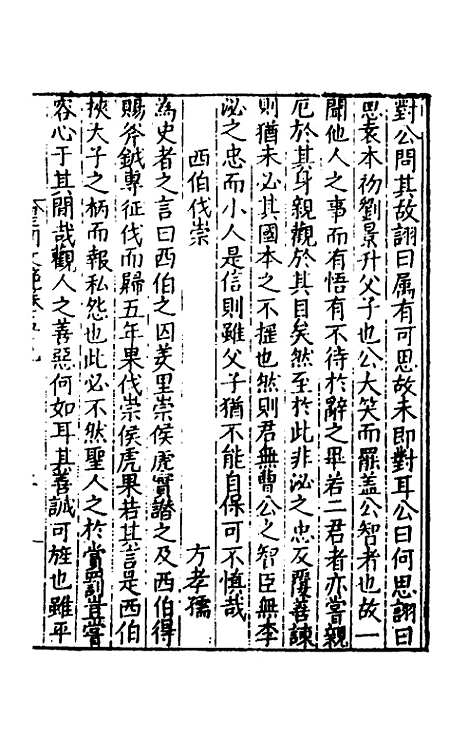 對公問其故詡曰属有可思故未即對耳公曰何思詡曰
思袁本初劉景升父子也公大笑而罷盖公智者也故一
聞他人之事而有悟有不待於辭之畢若二君者亦嘗親
厄於其身親觀於其目矣然至於此非泌之忠反覆善諫
則猶未必其國本之不揺也然則君無曹公之智臣無李
泌之忠而小人是信則雖父子猶不能自保可不慎哉
西伯伐崇 方孝孺
為史者之言曰西伯之囚羑里崇侯虎實譖之及西伯得
賜斧鉞專征伐而歸五年果伐崇侯虎果若其言是西伯
挾天子之柄而報私怨也此必不然聖人之於賞罰豈嘗
容心于其間哉觀人之善惡何如耳其善誠可旌也雖平